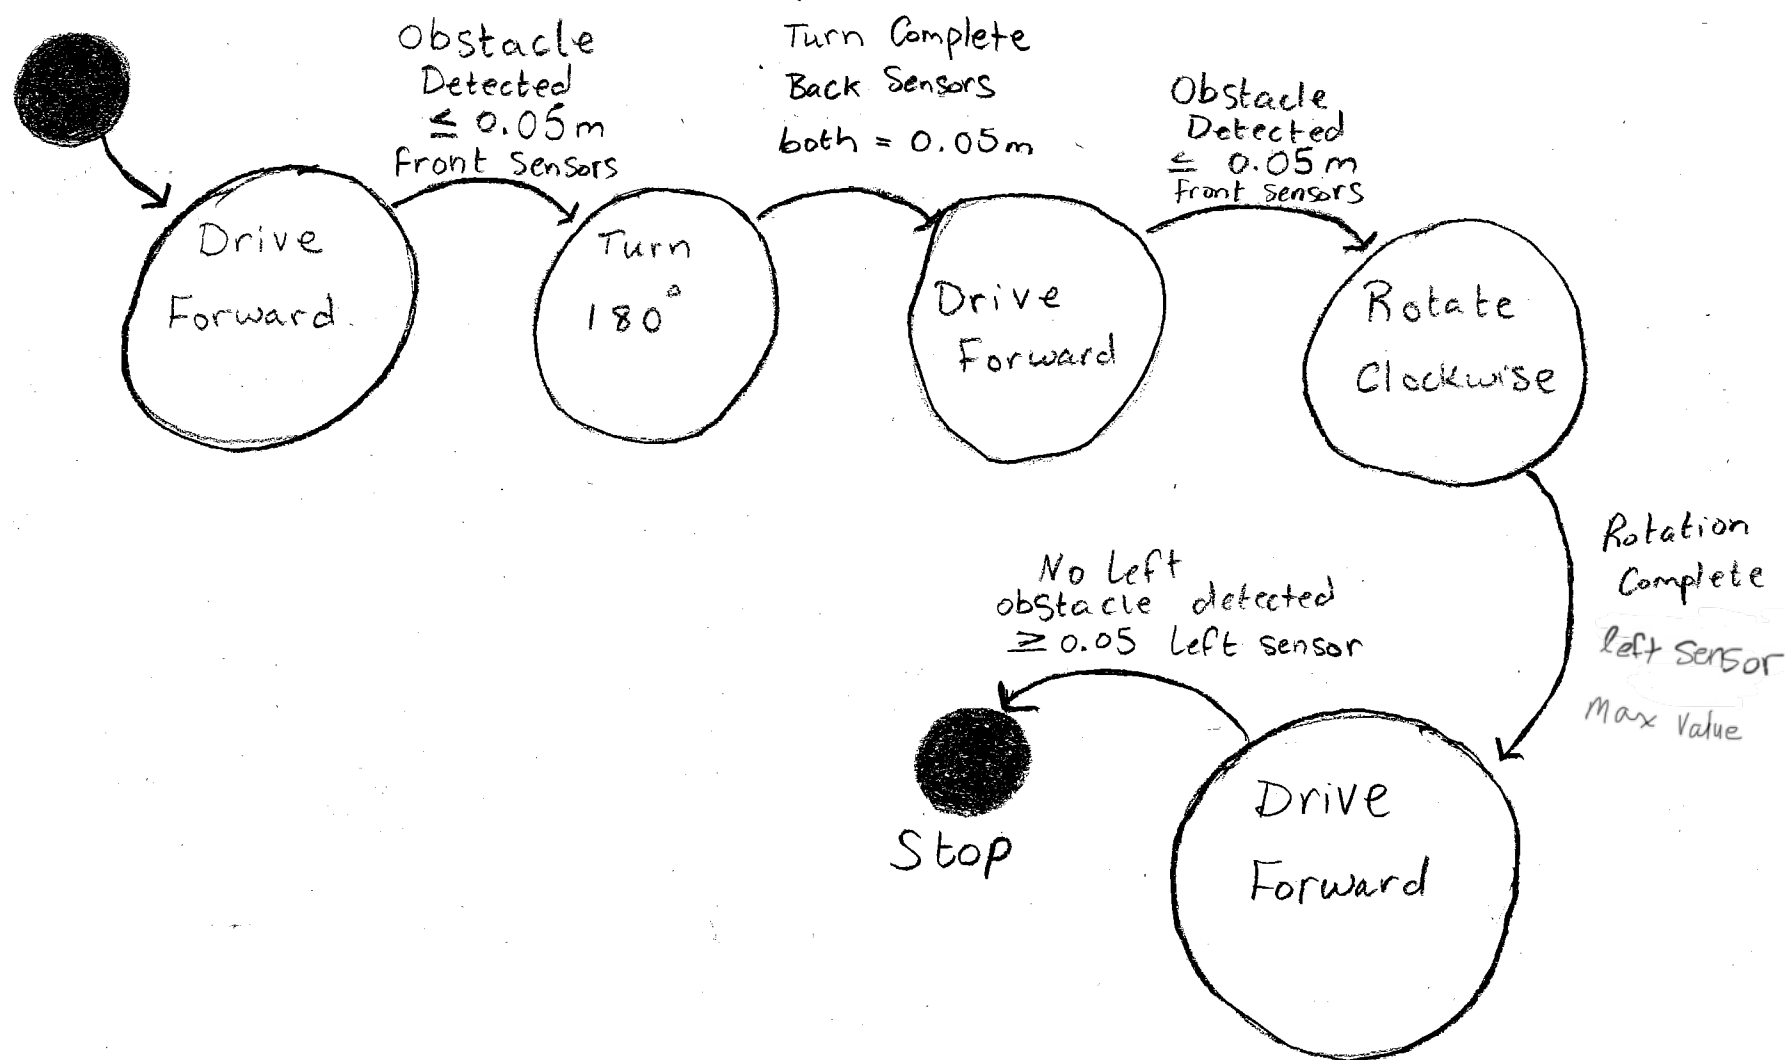 Obstacle
Detected
≤ 0.05m
Front Sensors
Turn Complete
Back Sensors
both = 0.05m
Obstacle
Detected
≤ 0.05m
Front Sensors
Drive
Forward
Turn
180°
Drive
Forward
Rotate
Clockwise
Rotation
Complete
left sensor
max value
No left
obstacle detected
≥ 0.05 left sensor
Stop
Drive
Forward